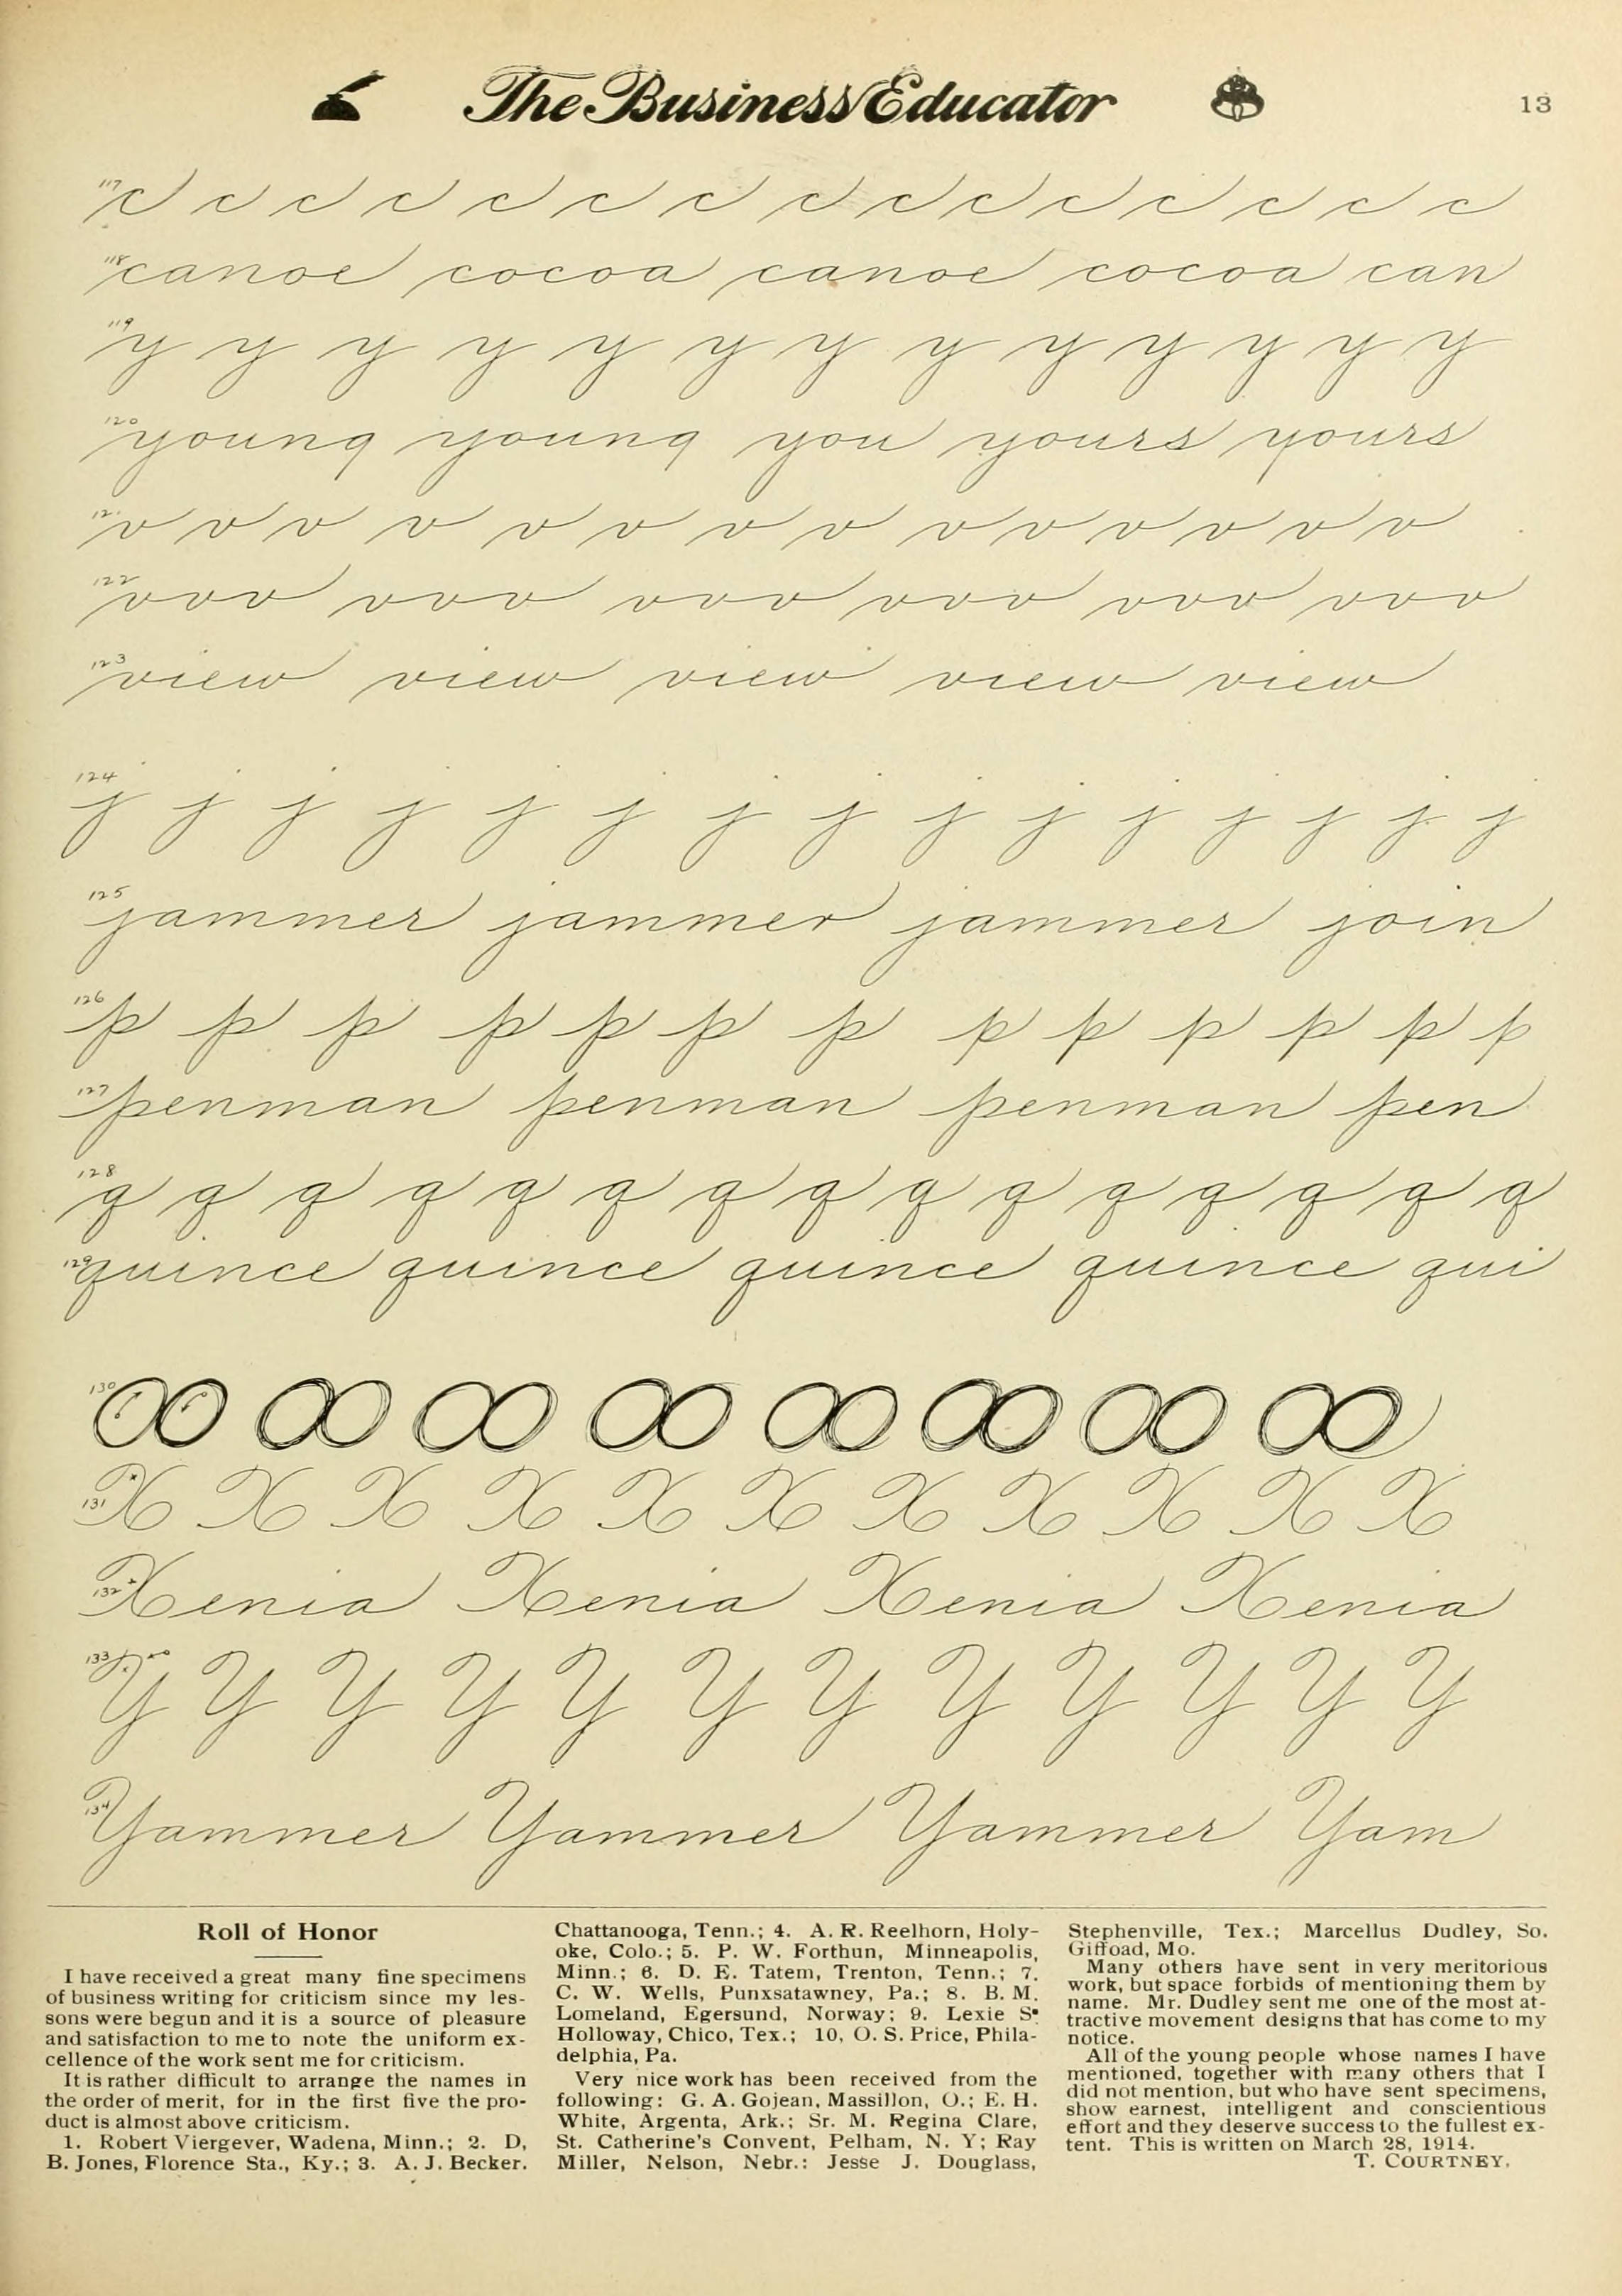 The Business Educator
13
117 c c c c c c c c c c c c c c c
118 canoe cocoa canoe cocoa can
119 y y y y y y y y y y y y y
120 young young you yours yours
12 v v v v v v v v v v v v v v
122 vvv vvv vvv vvv vvv vvv
123 view view view view view
124 j j j j j j j j j j j j j j j
125 jammer jammer jammer join
126 p p p p p p p p p p p p p
127 penman penman penman pen
128 q q q q q q q q q q q q q q q
129 quince quince quince quince qui
130
131 X X X X X X X X X X X
132 Xenia Xenia Xenia Xenia
133 Y Y Y Y Y Y Y Y Y Y Y Y
134 Yammer Yammer Yammer Yam
Roll of Honor
I have received a great many fine specimens
of business writing for criticism since my les-
sons were begun and it is a source of pleasure
and satisfaction to me to note the uniform ex-
cellence of the work sent me for criticism.
It is rather difficult to arrange the names in
the order of merit, for in the first five the pro-
duct is almost above criticism.
1. Robert Viergever, Wadena, Minn.; 2. D,
B. Jones, Florence Sta., Ky.; 3. A. J. Becker.
Chattanooga, Tenn.; 4. A. R. Reelhorn, Holy-
oke, Colo.; 5. P. W. Forthun, Minneapolis,
Minn.; 6. D. E. Tatem, Trenton, Tenn.; 7.
C. W. Wells, Punxsatawney, Pa.; 8. B. M.
Lomeland, Egersund, Norway; 9. Lexie S.
Holloway, Chico, Tex.; 10, O. S. Price, Phila-
delphia, Pa.
Very nice work has been received from the
following: G. A. Gojean, Massillon, O.; E. H.
White, Argenta, Ark.; Sr. M. Regina Clare,
St. Catherine's Convent, Pelham, N. Y; Ray
Miller, Nelson, Nebr.: Jesse J. Douglass,
Stephenville, Tex.; Marcellus Dudley, So.
Giffoad, Mo.
Many others have sent in very meritorious
work, but space forbids of mentioning them by
name. Mr. Dudley sent me one of the most at-
tractive movement designs that has come to my
notice.
All of the young people whose names I have
mentioned, together with many others that I
did not mention, but who have sent specimens,
show earnest, intelligent and conscientious
effort and they deserve success to the fullest ex-
tent. This is written on March 28, 1914.
T. COURTNEY.